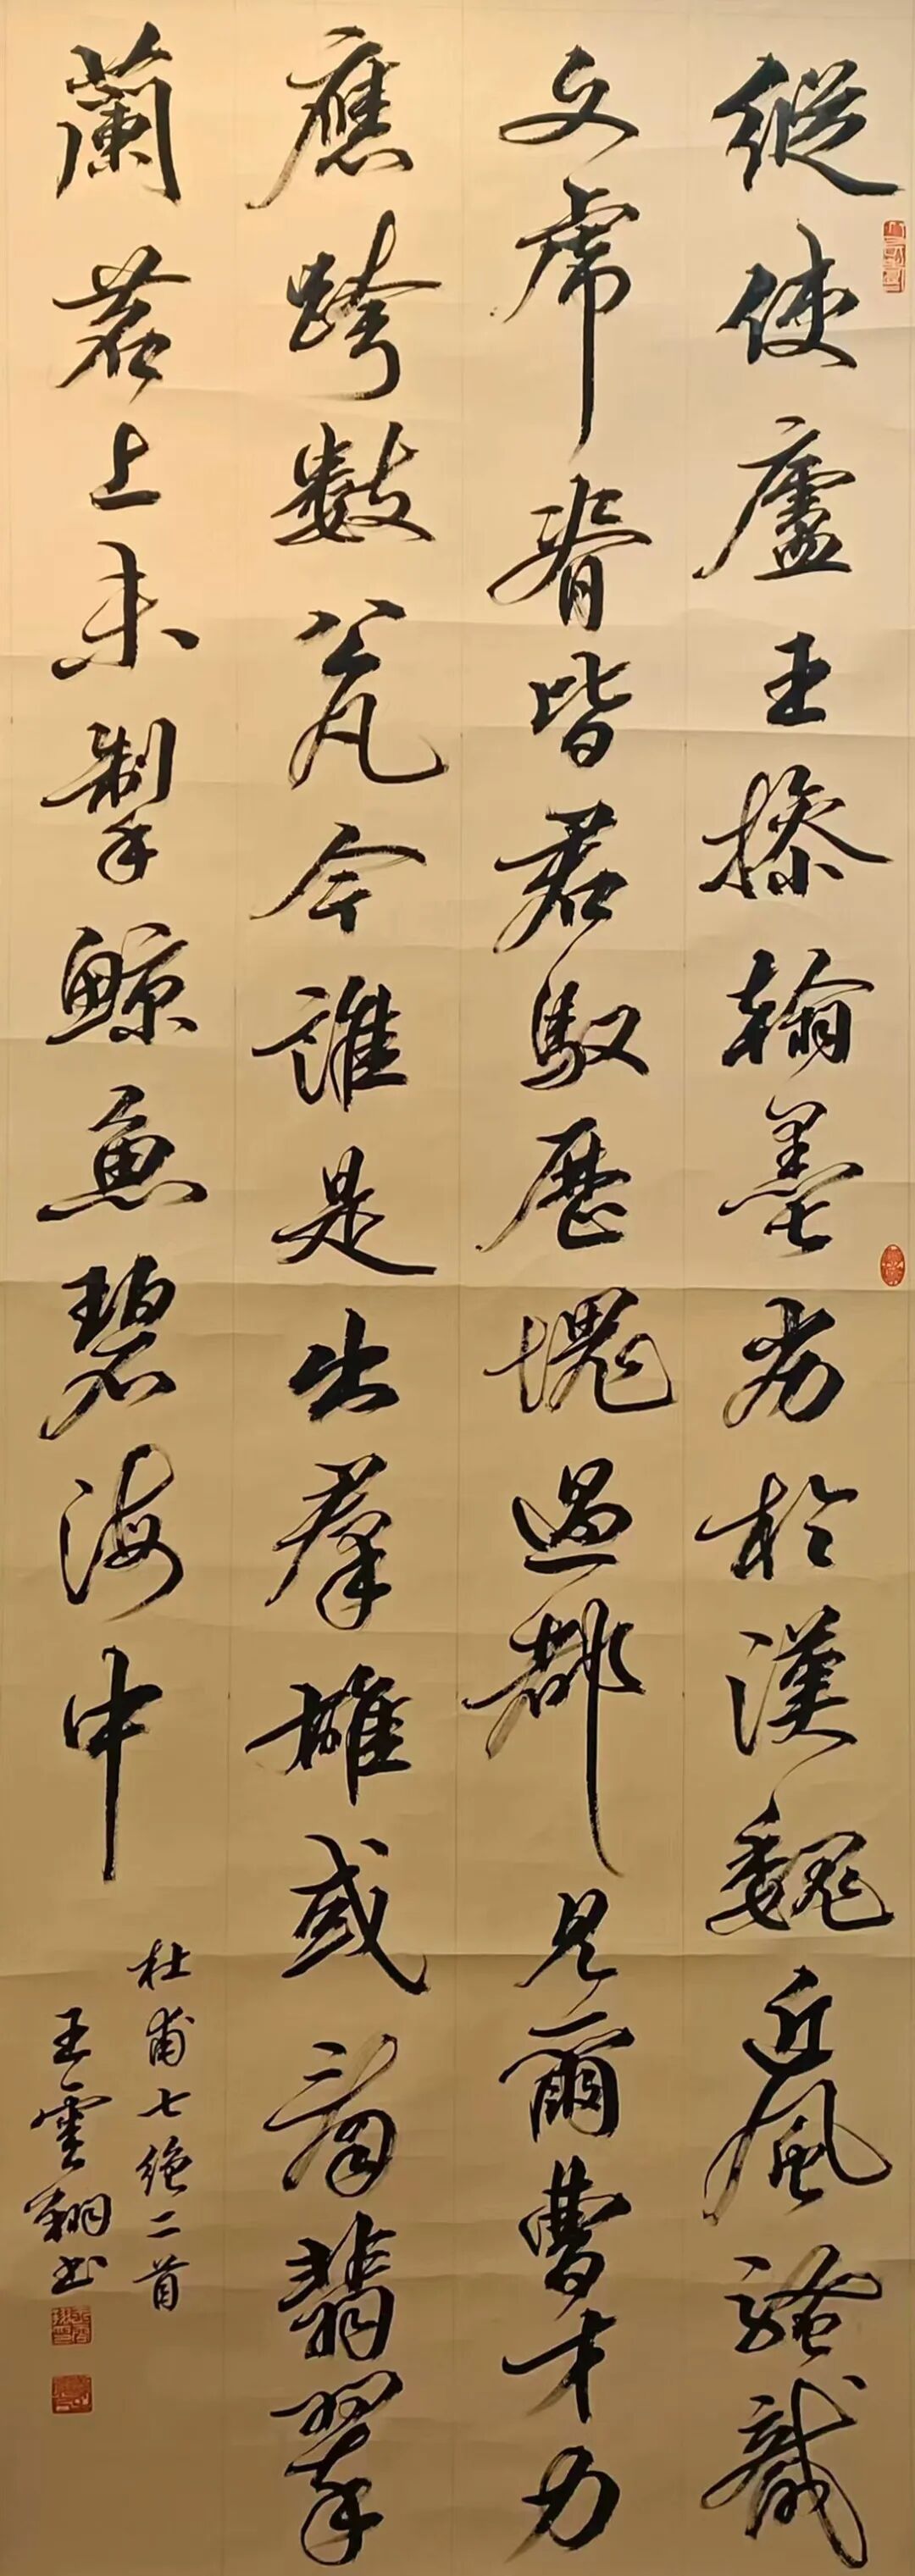 縱使盧王操翰墨劣於漢魏近風騷龍
文虎脊皆君馭歷塊過都見爾曹才力
應跨數公凡今誰是出羣雄或看翡翠
蘭苕上未掣鯨魚碧海中
杜甫七絶二首
王雲翔書